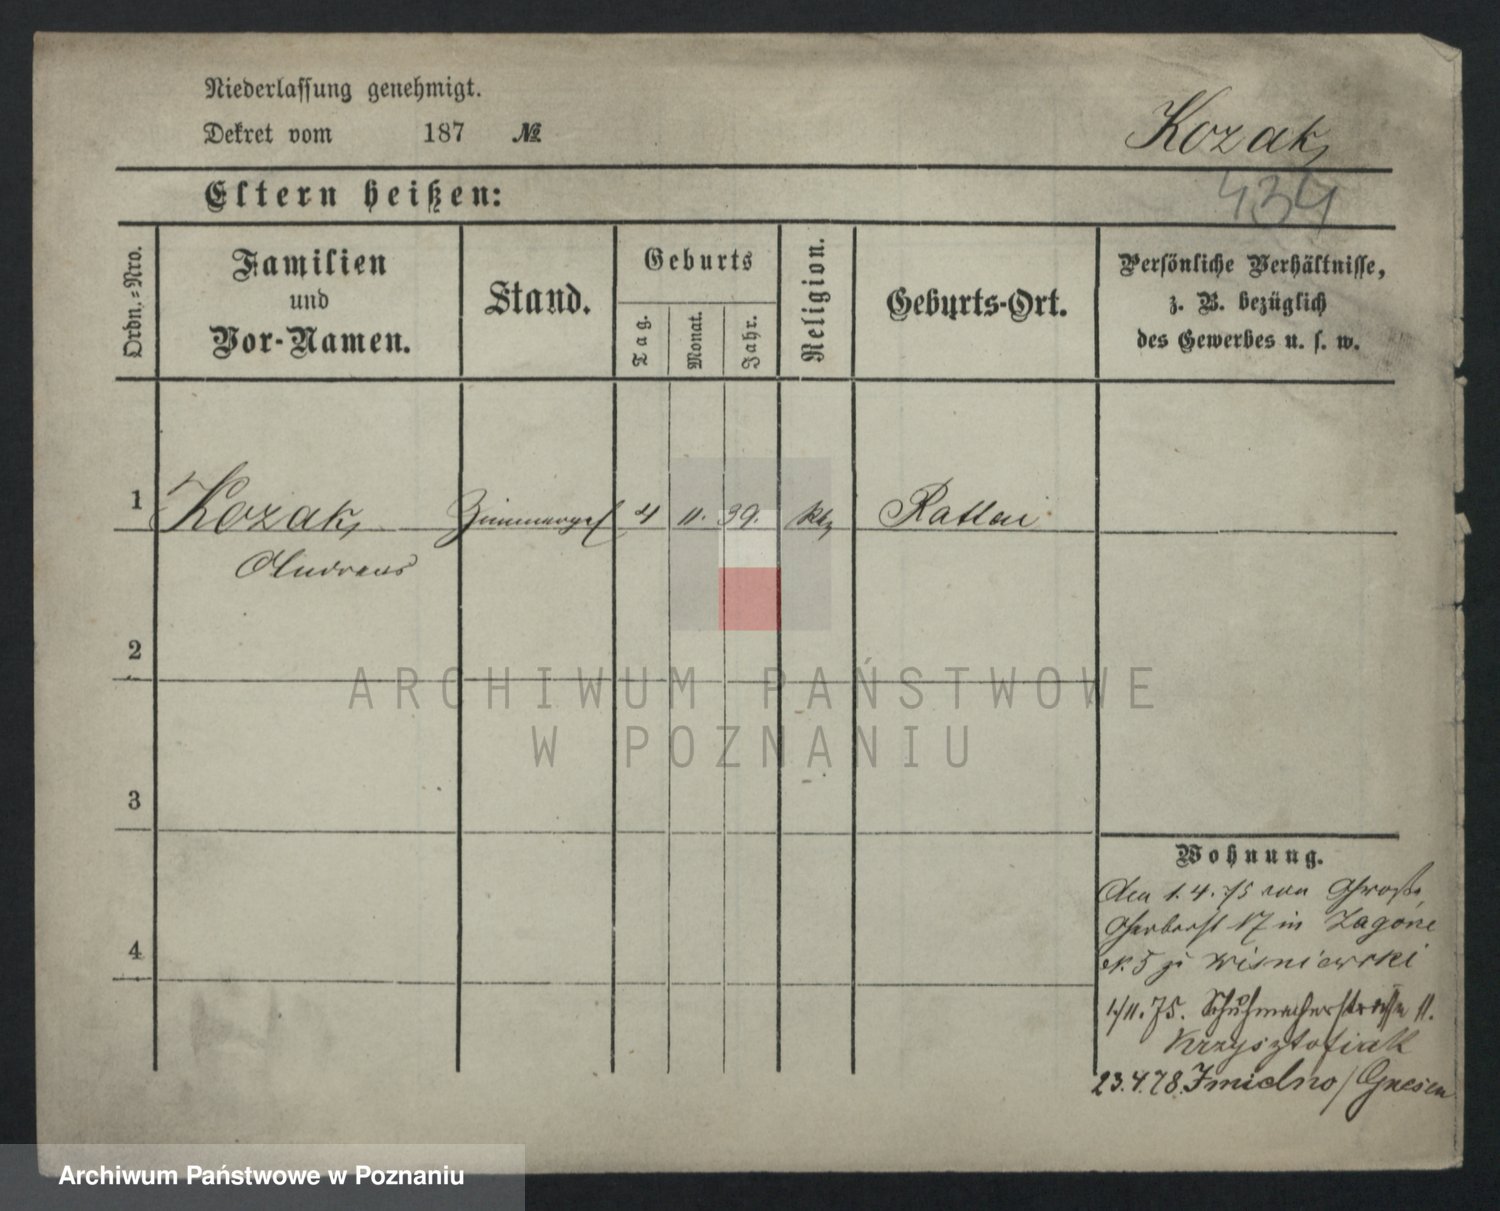 Niederlassung genehmigt.
Dekret vom 187 №
Kozak,
434
Eltern heißen:
Ordn.=Nro.
Familien
und
Vor-Namen.
Stand.
Geburts
Tag.
Monat.
Jahr.
Religion.
Geburts-Ort.
Persönliche Verhältnisse,
z. B. bezüglich
des Gewerbes u. s. w.
1 Kozak, Zimmerges 4 11. 39. kth Rattai
Andreas
2
3
4
ARCHIWUM PAŃSTWOWE
W POZNANIU
Wohnung.
Den 1.4.75 von Große
Gerberst 17 in Zagórze
No. 5 zu Wisniewski
1/11. 75. Schuhmacherstrasse 11.
Krzysztofiak
23.4.78. Imielno / Gnesen
Archiwum Państwowe w Poznaniu